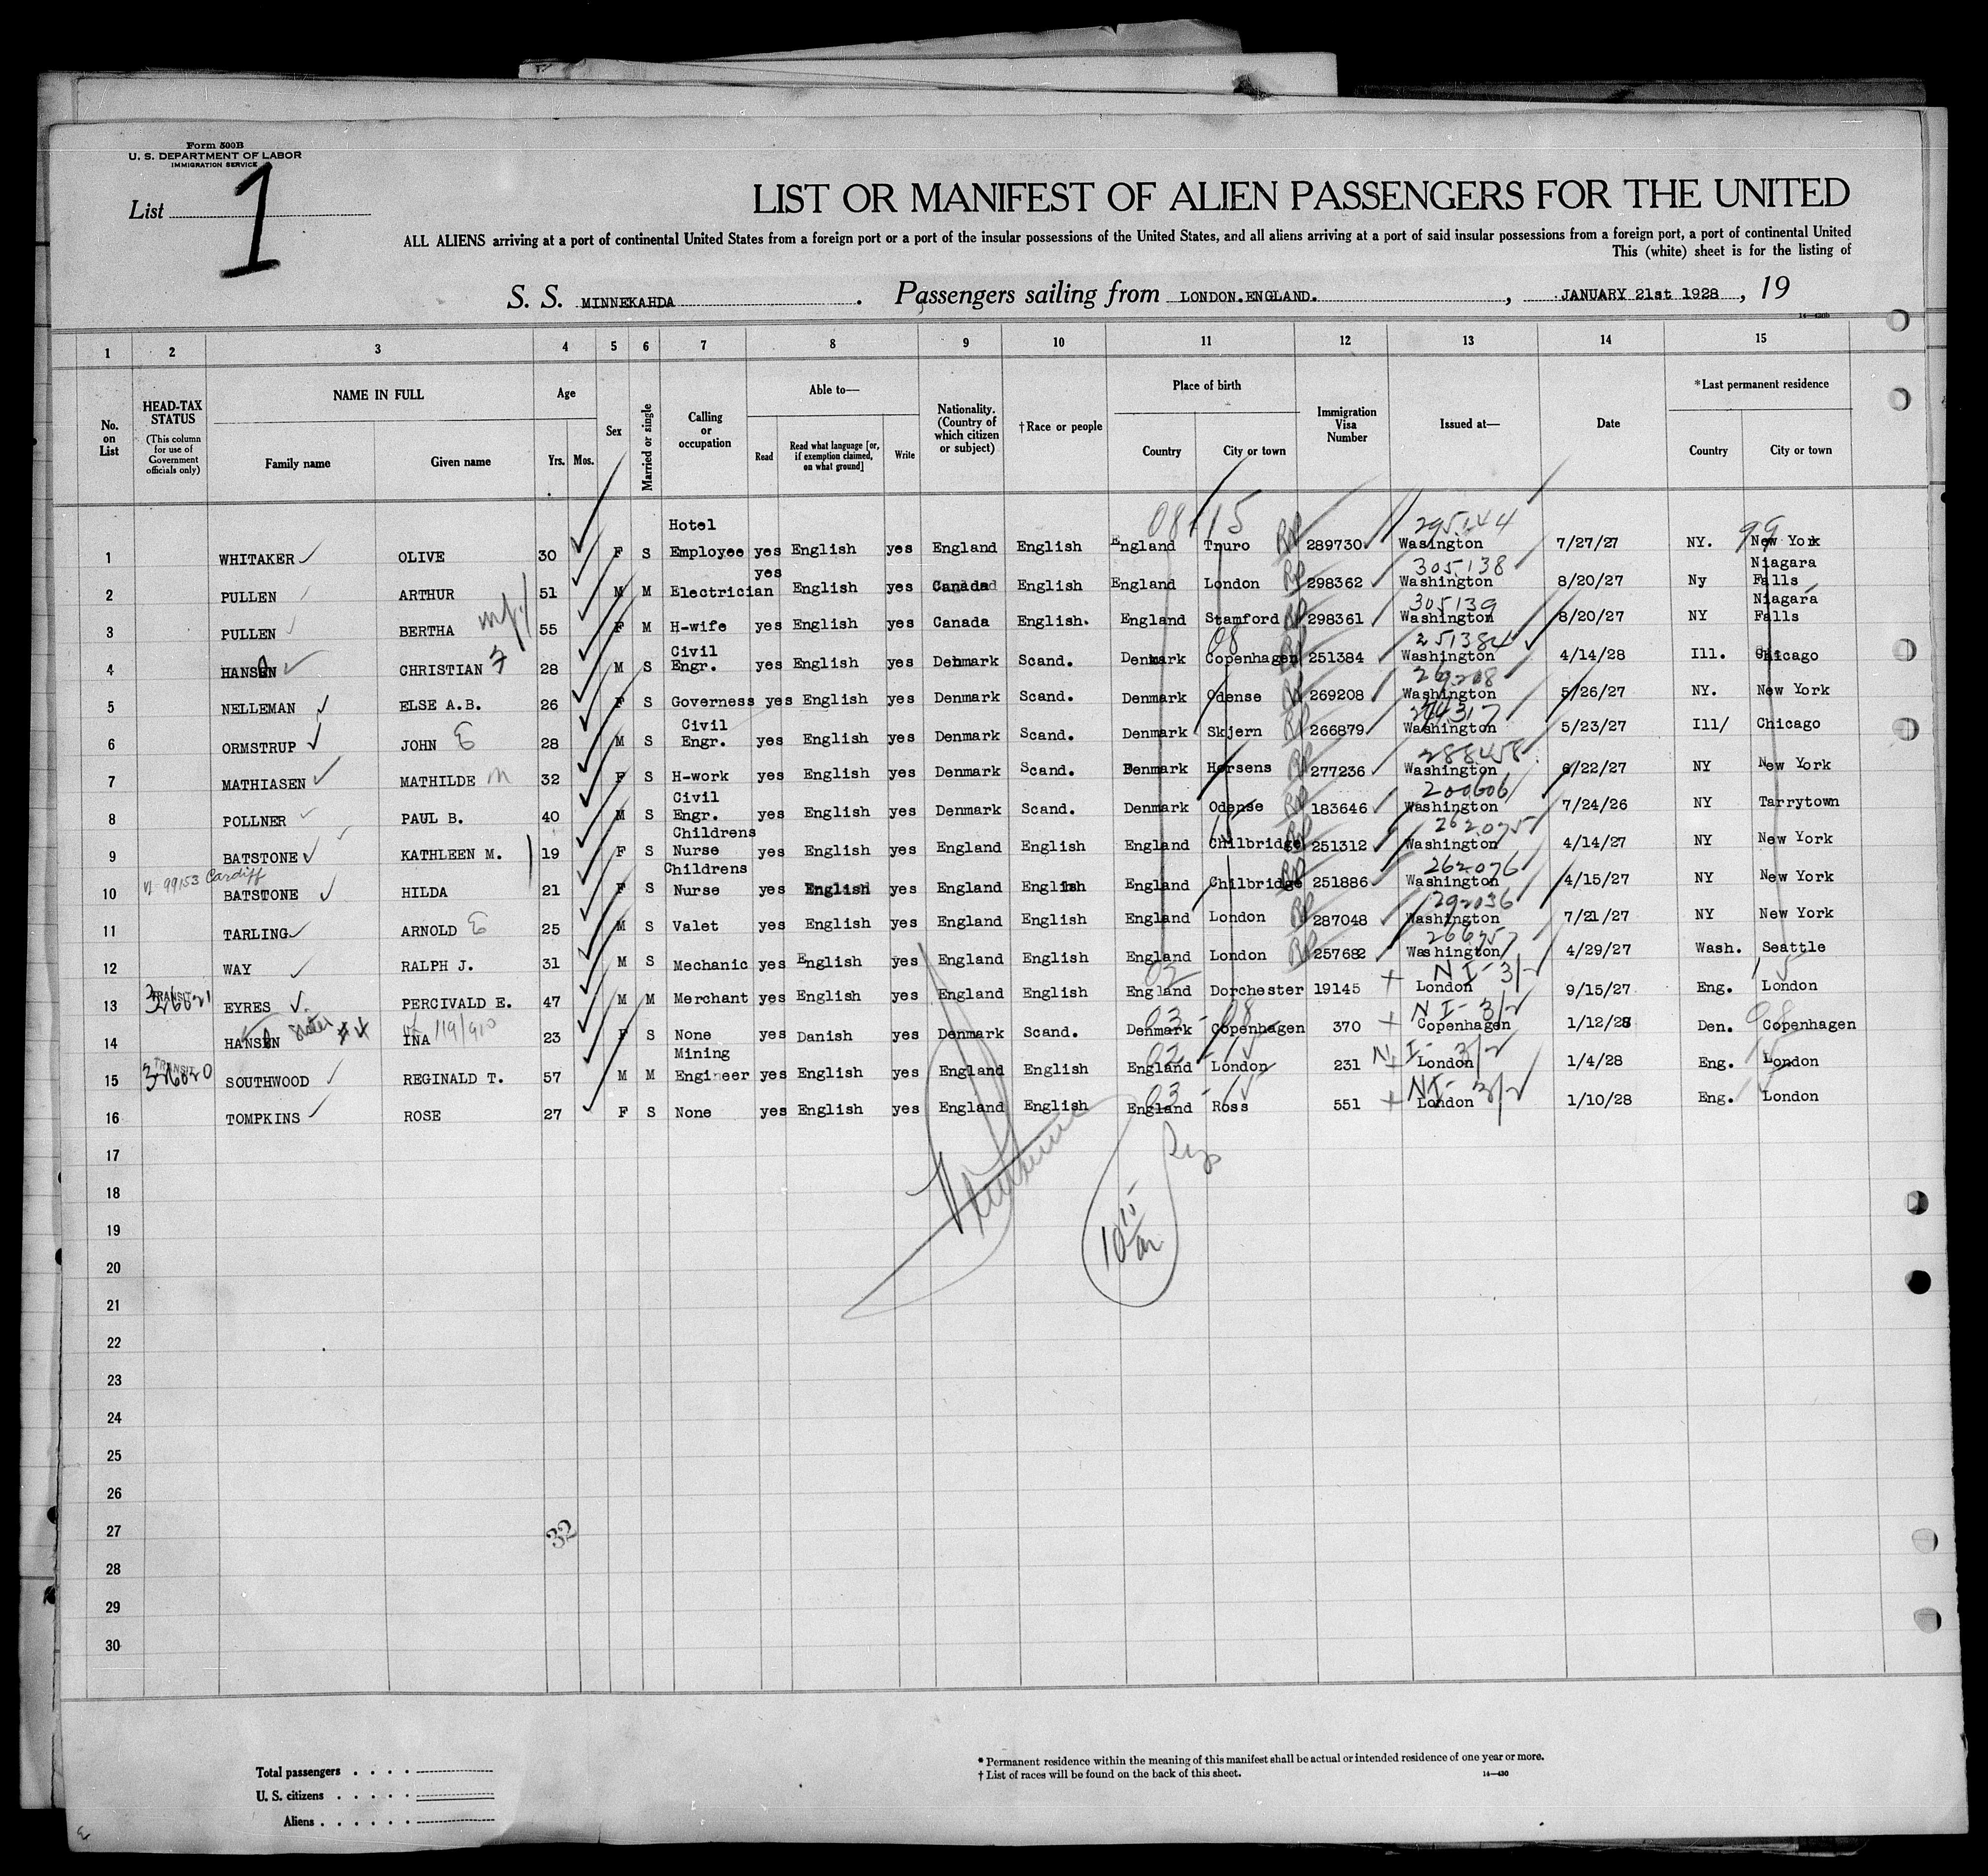 Form 500B
U. S. DEPARTMENT OF LABOR
IMMIGRATION SERVICE
List 1
LIST OR MANIFEST OF ALIEN PASSENGERS FOR THE UNITED
ALL ALIENS arriving at a port of continental United States from a foreign port or a port of the insular possessions of the United States, and all aliens arriving at a port of said insular possessions from a foreign port, a port of continental United
This (white) sheet is for the listing of
S. S. MINNEKAHDA. Passengers sailing from LONDON.ENGLAND. , JANUARY 21st 1928 , 19
14—430b
1 2 3 4 5 6 7 8 9 10 11 12 13 14 15
No. on List
HEAD-TAX STATUS (This column for use of Government officials only)
NAME IN FULL Family name Given name
Age Yrs. Mos.
Sex
Married or single
Calling or occupation
Able to— Read Read what language [or, if exemption claimed, on what ground] Write
Nationality. (Country of which citizen or subject)
†Race or people
Place of birth Country City or town
Immigration Visa Number
Issued at—
Date
*Last permanent residence Country City or town
08-15 295144 99
1 WHITAKER OLIVE 30 F S Hotel Employee yes English yes England English England Truro RP 289730 Wasington 7/27/27 NY. New York
305138
2 PULLEN ARTHUR 51 M M Electrician yes English yes Canada English England London RP 298362 Washington 8/20/27 Ny Niagara Falls
305139
3 PULLEN BERTHA 55 F M H-wife yes English yes Canada English. England Stamford RP 298361 Washington 8/20/27 NY Niagara Falls
08 251384
4 HANSEN CHRISTIAN 28 M S Civil Engr. yes English yes Denmark Scand. Denmark Copenhagen RP 251384 Washington 4/14/28 Ill. Chicago
269208
5 NELLEMAN ELSE A.B. 26 F S Governess yes English yes Denmark Scand. Denmark Odense RP 269208 Washington 5/26/27 NY. New York
6 ORMSTRUP JOHN E 28 M S Civil Engr. yes English yes Denmark Scand. Denmark Skjern RP 266879 Washington 5/23/27 Ill/ Chicago
288458
7 MATHIASEN MATHILDE M 32 F S H-work yes English yes Denmark Scand. Denmark Horsens RP 277236 Washington 6/22/27 NY New York
200606
8 POLLNER PAUL B. 40 M S Civil Engr. yes English yes Denmark Scand. Denmark Odense RP 183646 Washington 7/24/26 NY Tarrytown
15 262075
9 BATSTONE KATHLEEN M. 19 F S Childrens Nurse yes English yes England English England Chilbridge RP 251312 Washington 4/14/27 NY New York
99153 Cardiff 262076
10 BATSTONE HILDA 21 F S Childrens Nurse yes English yes England English England Chilbridge RP 251886 Washington 4/15/27 NY New York
292036
11 TARLING ARNOLD E 25 M S Valet yes English yes England English England London RP 287048 Washington 7/21/27 NY New York
266757
12 WAY RALPH J. 31 M S Mechanic yes English yes England English England London RP 257682 Washington 4/29/27 Wash. Seattle
TRANSIT 02 NI- 3/2 15
13 EYRES PERCIVALD E. 47 M M Merchant yes English yes England English England Dorchester 19145 London 9/15/27 Eng. London
sister #4 119/910 03-08 NI- 3/2 08
14 HANSEN INA 23 F S None yes Danish yes Denmark Scand. Denmark Copenhagen 370 Copenhagen 1/12/28 Den. Copenhagen
TRANSIT 326020 02-15 NI- 3/2 15
15 SOUTHWOOD REGINALD T. 57 M M Mining Engineer yes English yes England English England London 231 London 1/4/28 Eng. London
03-15 NI- 3/2
16 TOMPKINS ROSE 27 F S None yes English yes England English England Ross 551 London 1/10/28 Eng. London
17
18
19
20
21
22
23
24
25
26
27
28
29
30
32
Total passengers
U. S. citizens
Aliens
* Permanent residence within the meaning of this manifest shall be actual or intended residence of one year or more.
† List of races will be found on the back of this sheet.
14—430